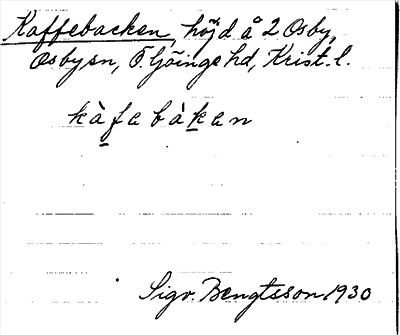 Kaffebacken, höjd å 2 Osby,
Osby sn, Ö. Göinge hd, Krist. l.
kàfebàken
Sigv. Bengtsson 1930